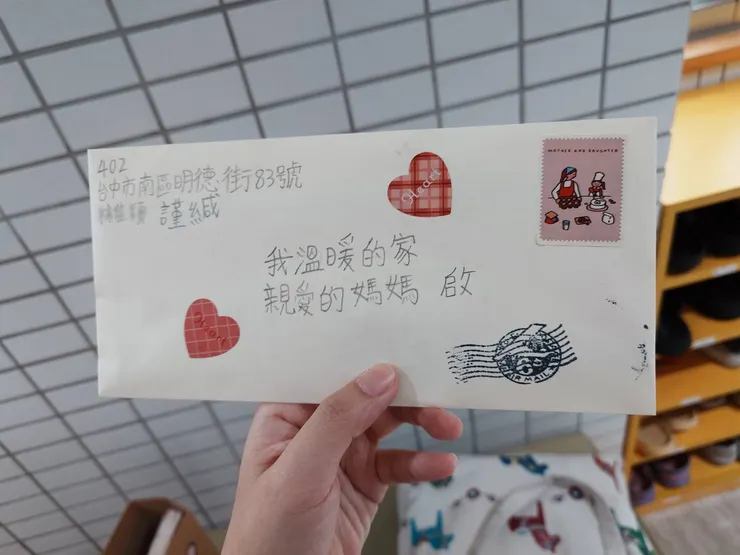 402
台中市南區明德街83號
謹緘
Heart
MOTHER AND DAUGHTER
我溫暖的家
親愛的媽媽 啟
AIR MAIL